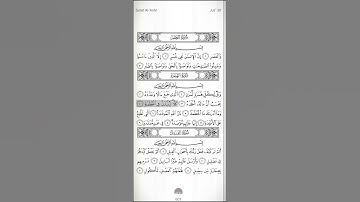 Juz' 30
سورة العصر
بسم الله الرحمن الرحيم
والعصر ١ إن الإنسان لفى خسر ٢ إلا الذين ءامنوا
وعملوا الصالحات وتواصوا بالحق وتواصوا بالصبر ٣
سورة الهمزة
بسم الله الرحمن الرحيم
ويل لكل همزة لمزة ١ الذى جمع مالا وعدده ٢
يحسب أن ماله أخلده ٣ كلا لينبذن فى الحطمة ٤
وما أدراك ما الحطمة ٥ نار الله الموقدة ٦ التى تطلع
على الأفئدة ٧ إنها عليهم مؤصدة ٨ فى عمد ممددة ٩
سورة الفيل
بسم الله الرحمن الرحيم
ألم تر كيف فعل ربك بأصحاب الفيل ١ ألم يجعل كيدهم
فى تضليل ٢ وأرسل عليهم طيرا أبابيل ٣ ترميهم
بحجارة من سجيل ٤ فجعلهم كعصف مأكول ٥
601